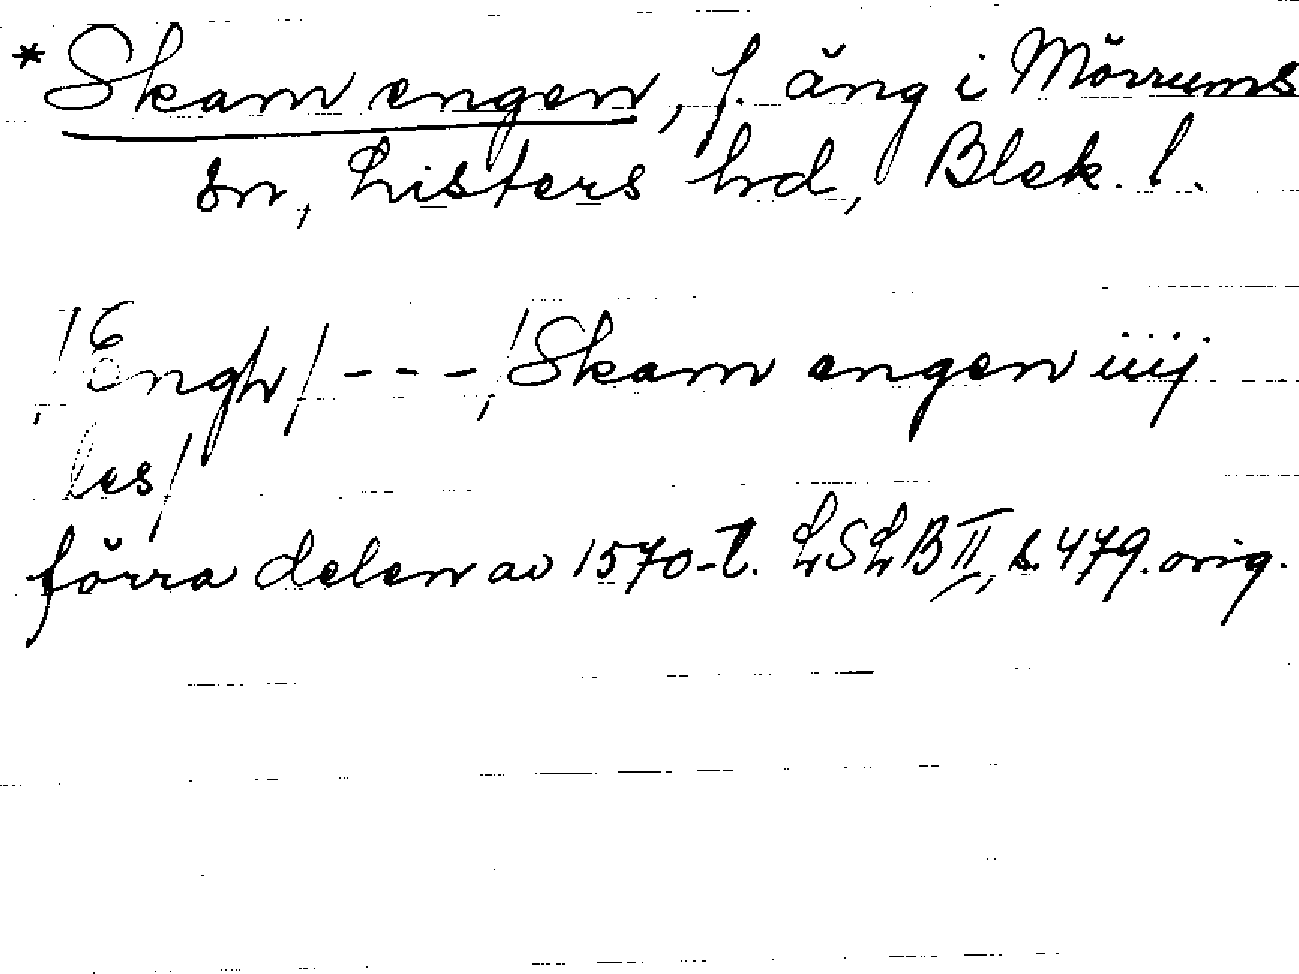 * Skam engen, f. äng i Mörrums
sn, Listers hrd, Blek. l.
/Engh/ - - - /Skam engen iiij
les/
förra delen av 1570-t. LSLB II, s. 479. orig.